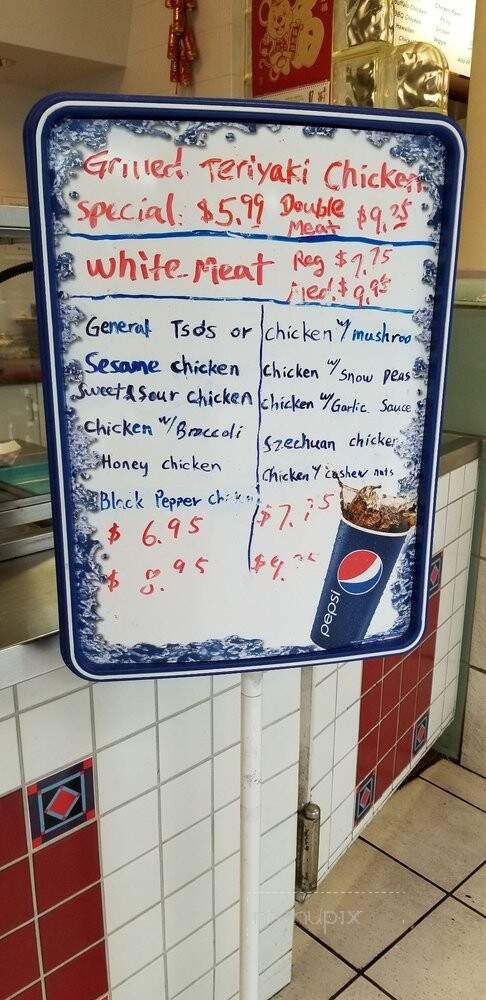 Grilled Teriyaki Chicken
special: $5.99 Double Meat $9.25
white Meat Reg $7.75
Med. $9.95
General Tsds or
Sesame chicken
Sweet & Sour chicken
chicken w/ Broccoli
Honey chicken
Black Pepper chicken
$ 6.95
$ 8.95
chicken w/ mushroo
chicken w/ Snow peas
chicken w/ Garlic Sauce
Szechuan chicken
chicken w/ cashew nuts
pepsi